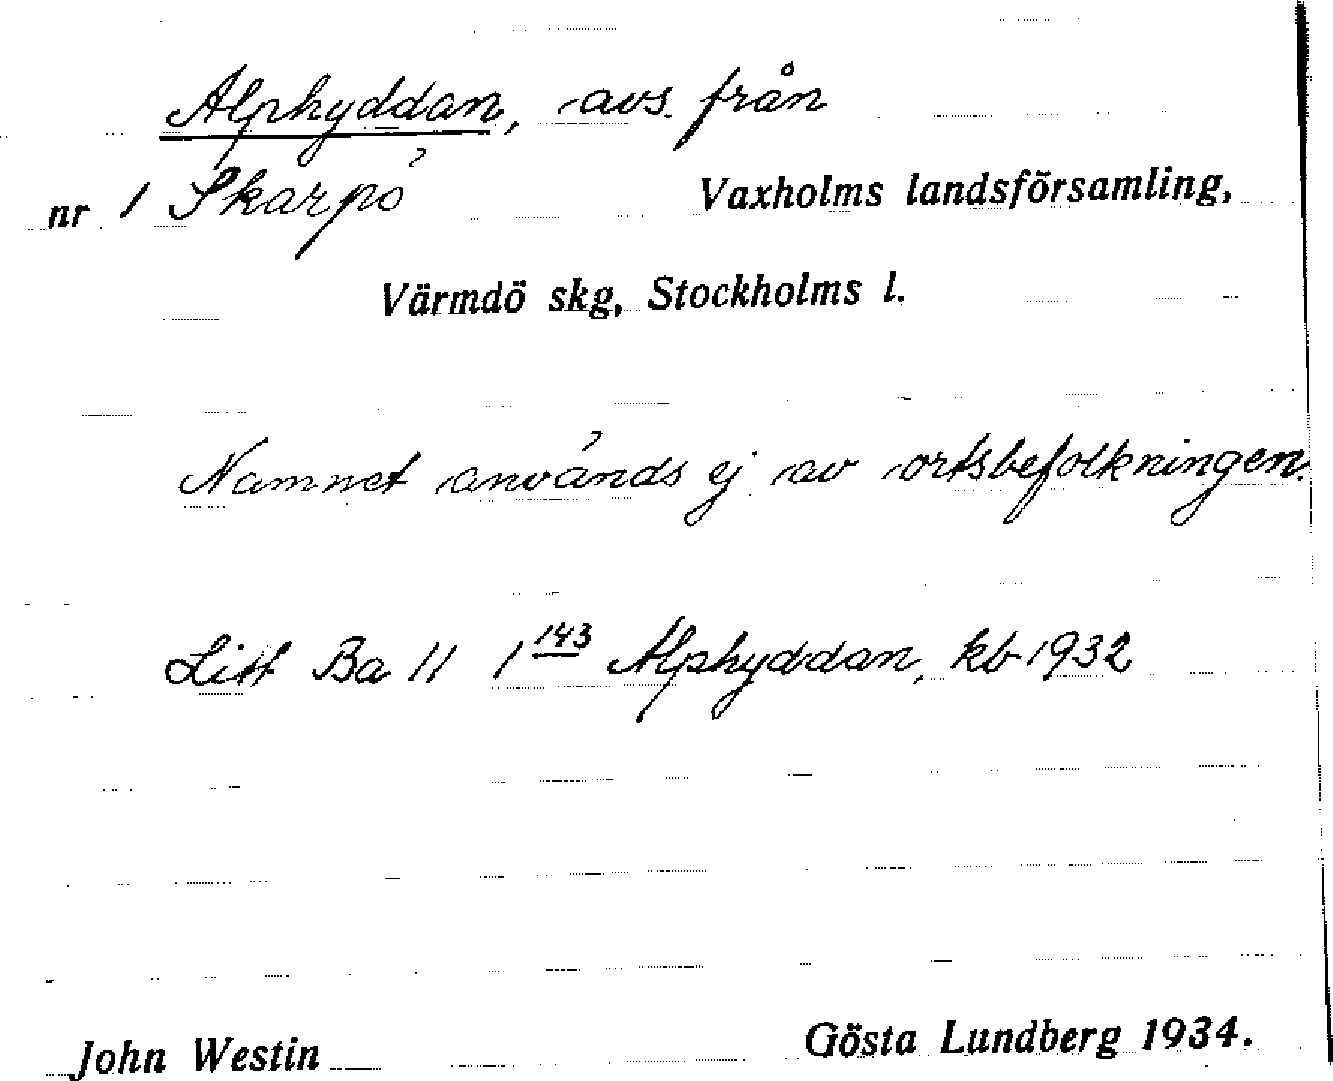 Alphyddan, avs. från
nr 1 Skarpö Vaxholms landsförsamling,
Värmdö skg, Stockholms l.
Namnet används ej av ortsbefolkningen.
Litt Ba 11 1 143 Alphyddan, kb 1932
John Westin Gösta Lundberg 1934.